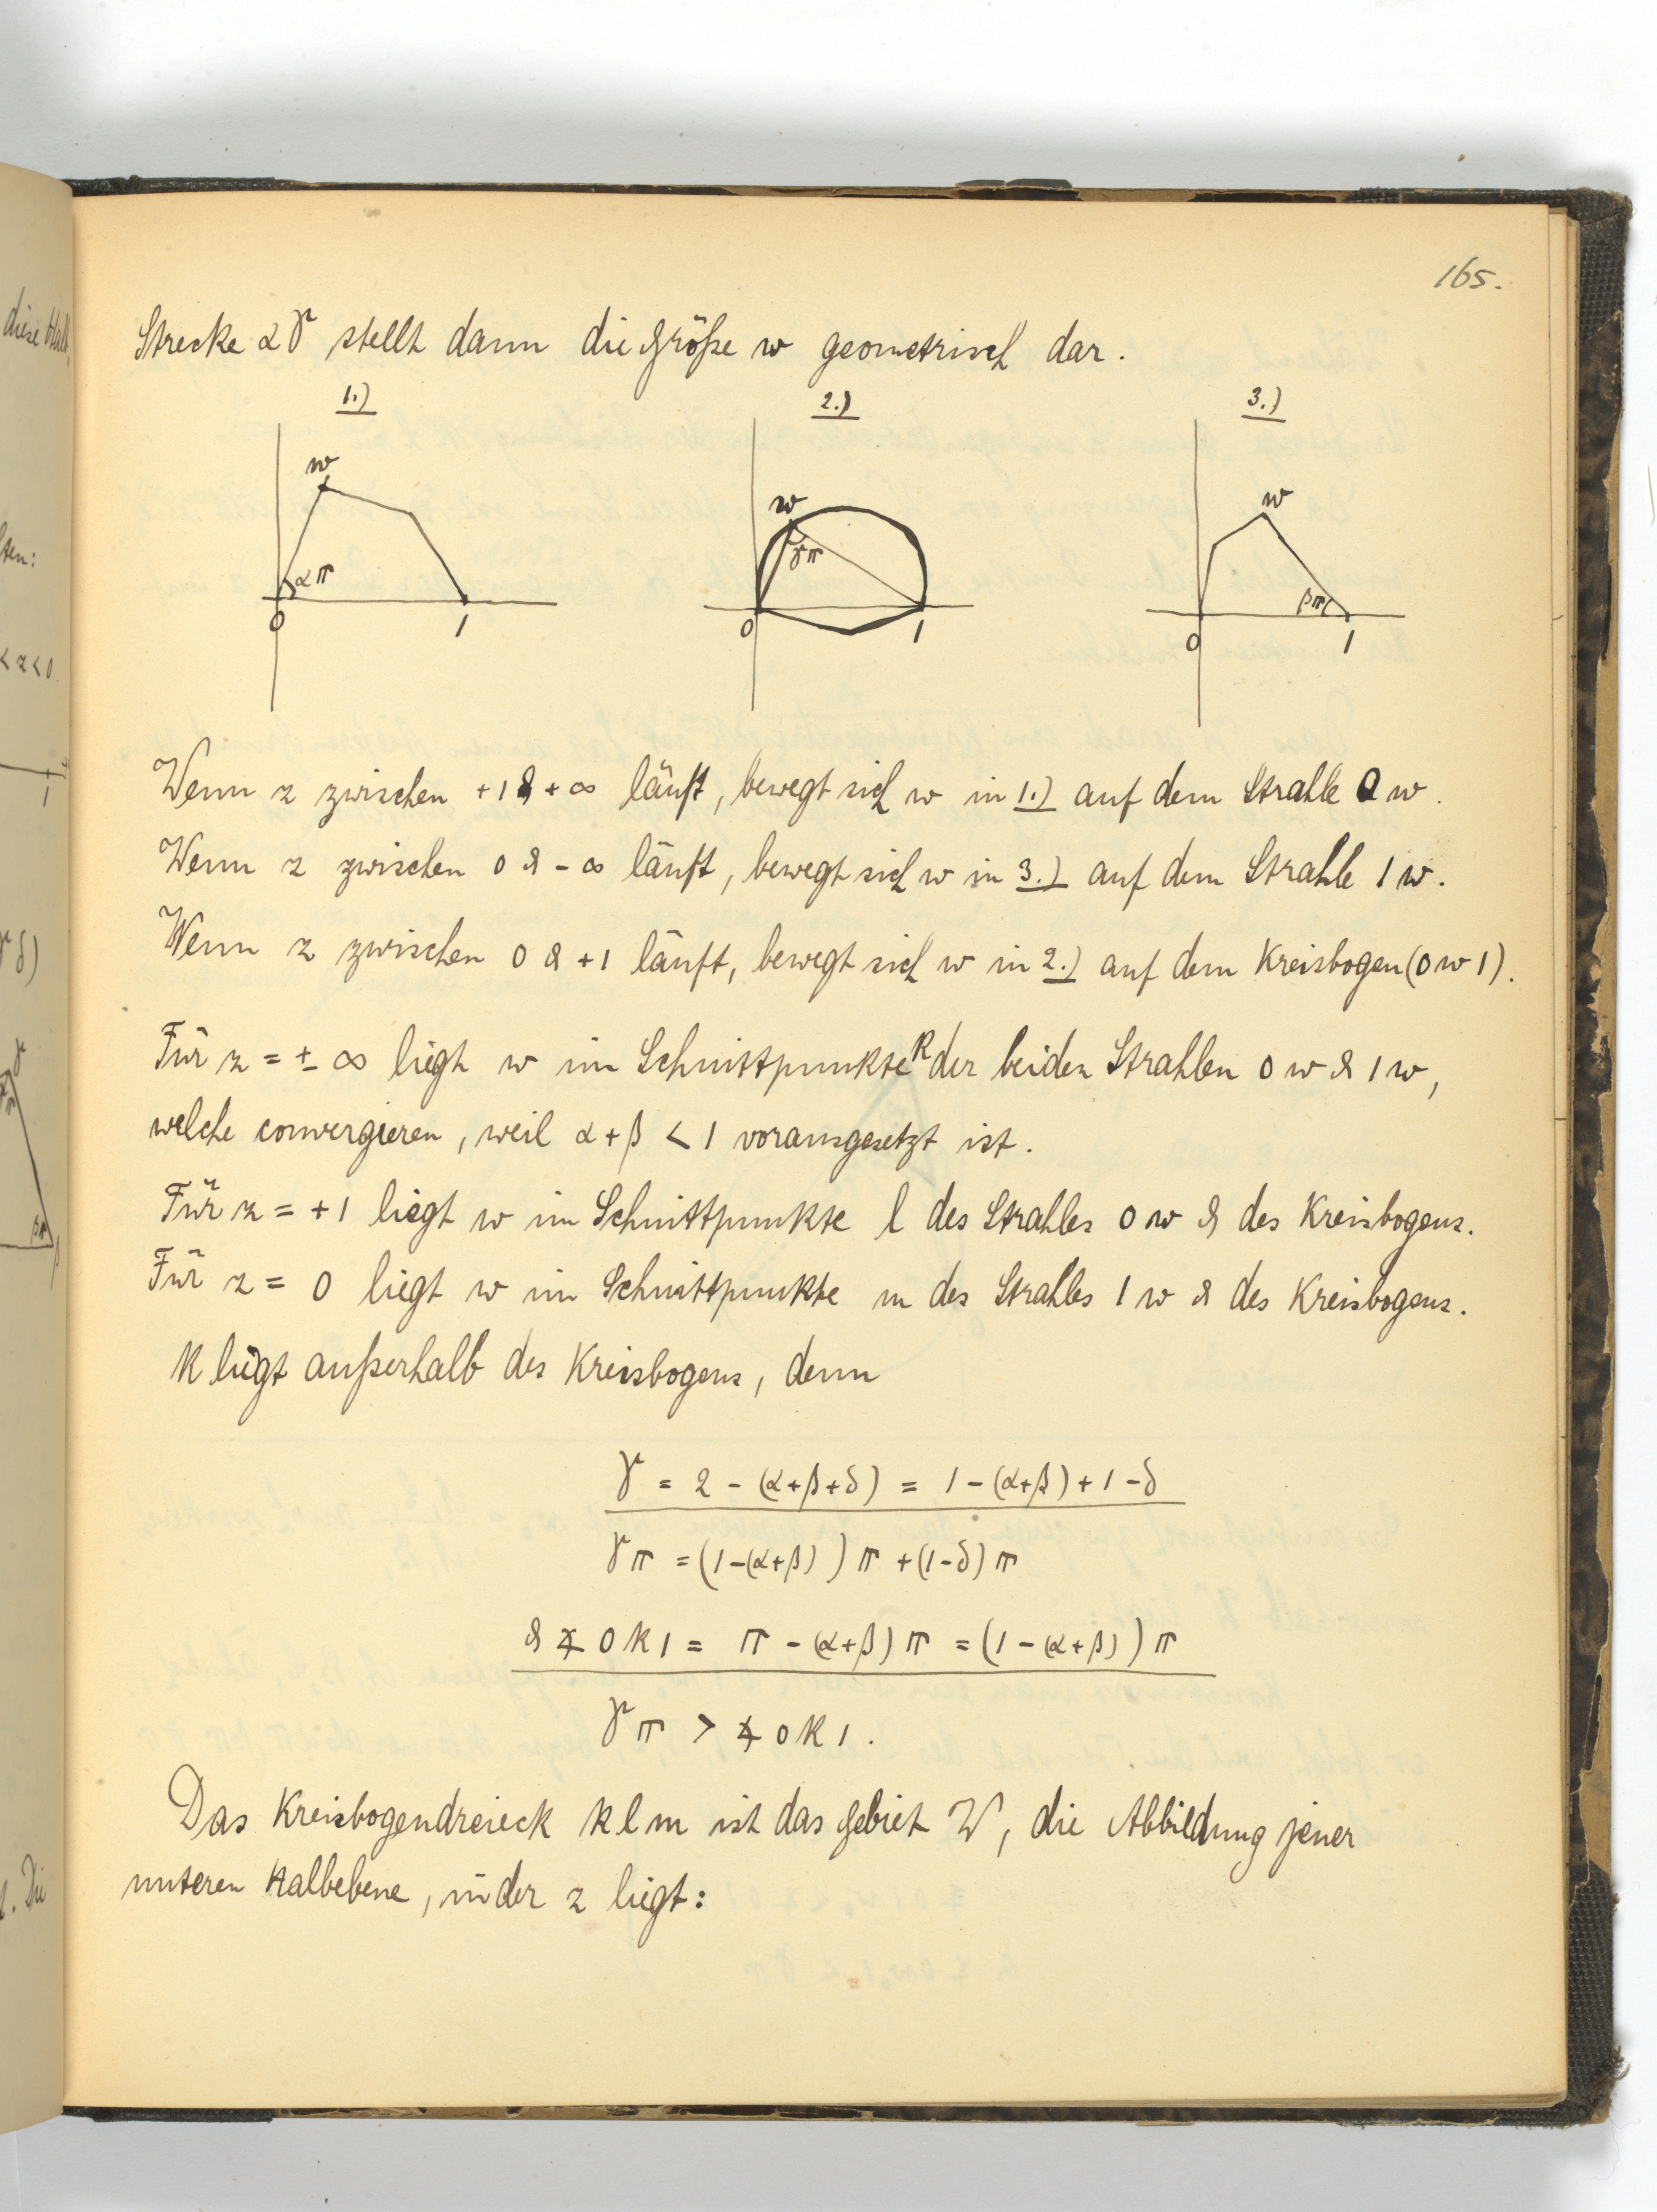 165.
Strecke αγ stellt dann die Größe w geometrisch dar.
1.) 2.) 3.)
w w w
απ γπ βπ
0 1 0 1 0 1
Wenn z zwischen +1 & +∞ läuft, bewegt sich w in 1.) auf dem Strahle 0w.
Wenn z zwischen 0 & -∞ läuft, bewegt sich w in 3.) auf dem Strahle 1w.
Wenn z zwischen 0 & +1 läuft, bewegt sich w in 2.) auf dem Kreisbogen (0w1).
Für z = ±∞ liegt w im Schnittpunkte k der beiden Strahlen 0w & 1w,
welche convergieren, weil α+β < 1 vorausgesetzt ist.
Für z = +1 liegt w im Schnittpunkte l des Strahles 0w & des Kreisbogens.
Für z = 0 liegt w im Schnittpunkte m des Strahles 1w & des Kreisbogens.
k liegt außerhalb des Kreisbogens, denn
γ = 2 - (α+β+δ) = 1 - (α+β) + 1 - δ
γπ = (1-(α+β))π + (1-δ)π
& ∢ 0k1 = π - (α+β)π = (1-(α+β))π
γπ > ∢ 0k1.
Das Kreisbogendreieck klm ist das Gebiet W, die Abbildung jener
unteren Halbebene, in der z liegt:
diese Halb
ten:
< z < 0
1
γδ)
γ
βπ
β
. Die